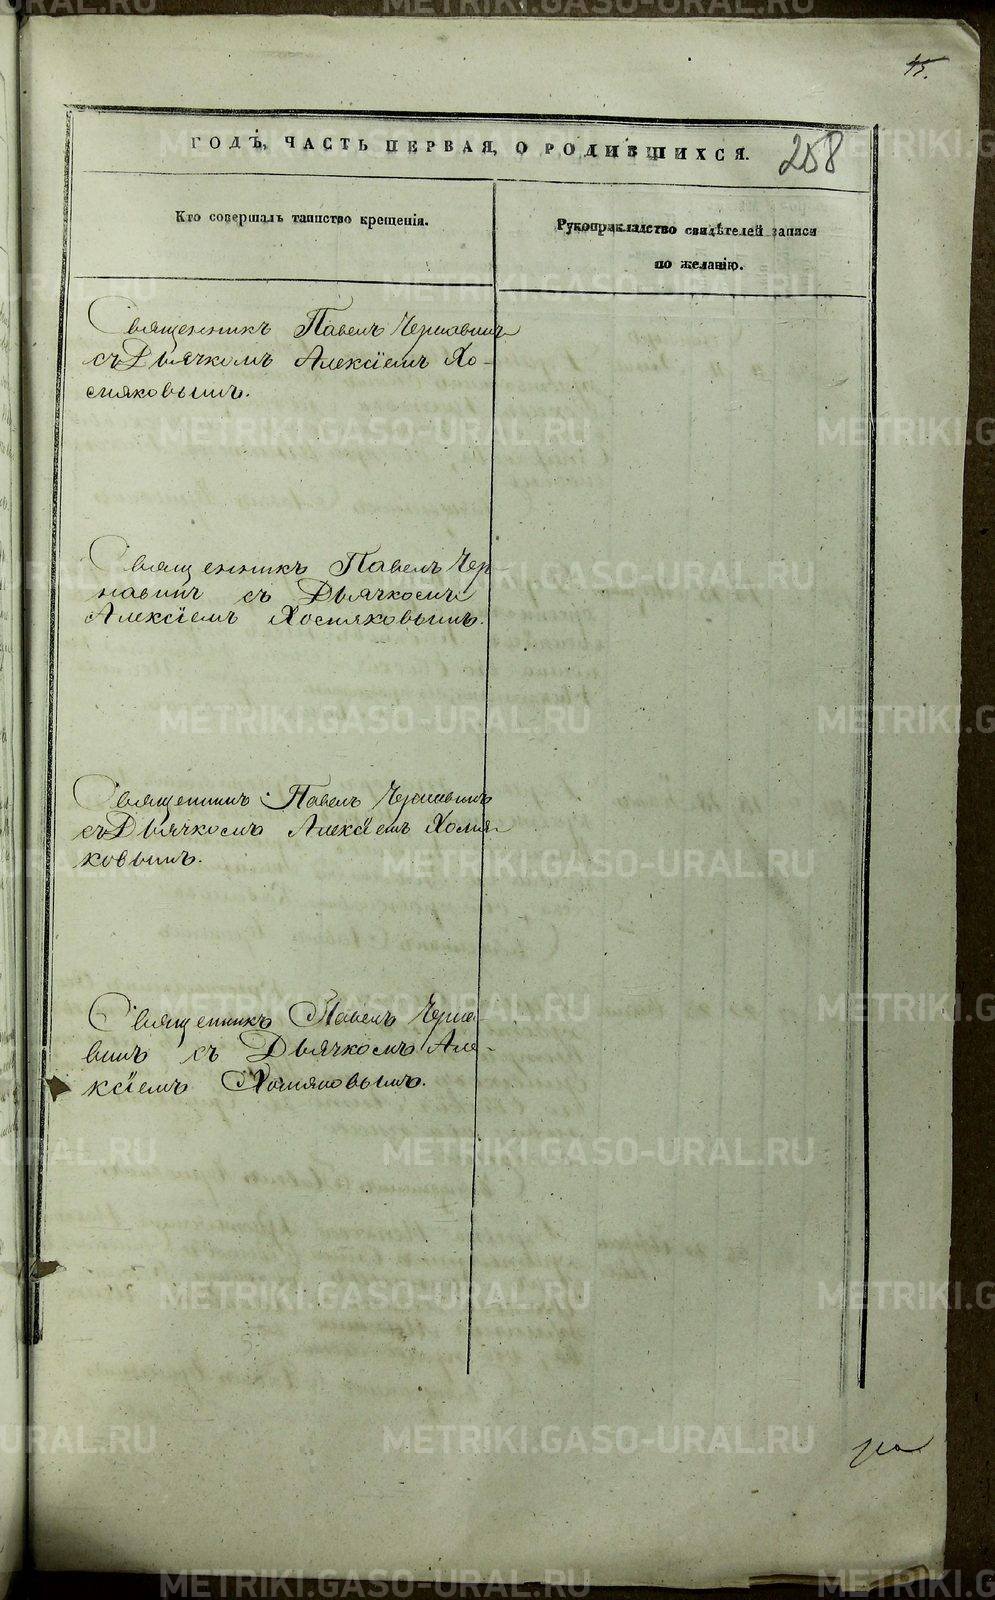 45.
ГОДЪ, ЧАСТЬ ПЕРВАЯ, О РОДИВШИХСЯ.
258
Кто совершалъ таинство крещенія.
Рукоприкладство свидѣтелей записи
по желанію.
Священникъ Павелъ Чернавинъ
съ Дьячкомъ Алексіемъ Хо-
мяковымъ.
Священникъ Павелъ Чер-
навинъ съ Дьячкомъ
Алексіемъ Хомяковымъ.
Священникъ Павелъ Чернавинъ
съ Дьячкомъ Алексіемъ Хомя-
ковымъ.
Священникъ Павелъ Черна-
винъ съ Дьячкомъ Але-
ксіемъ Хомяковымъ.
METRIKI.GASO-URAL.RU